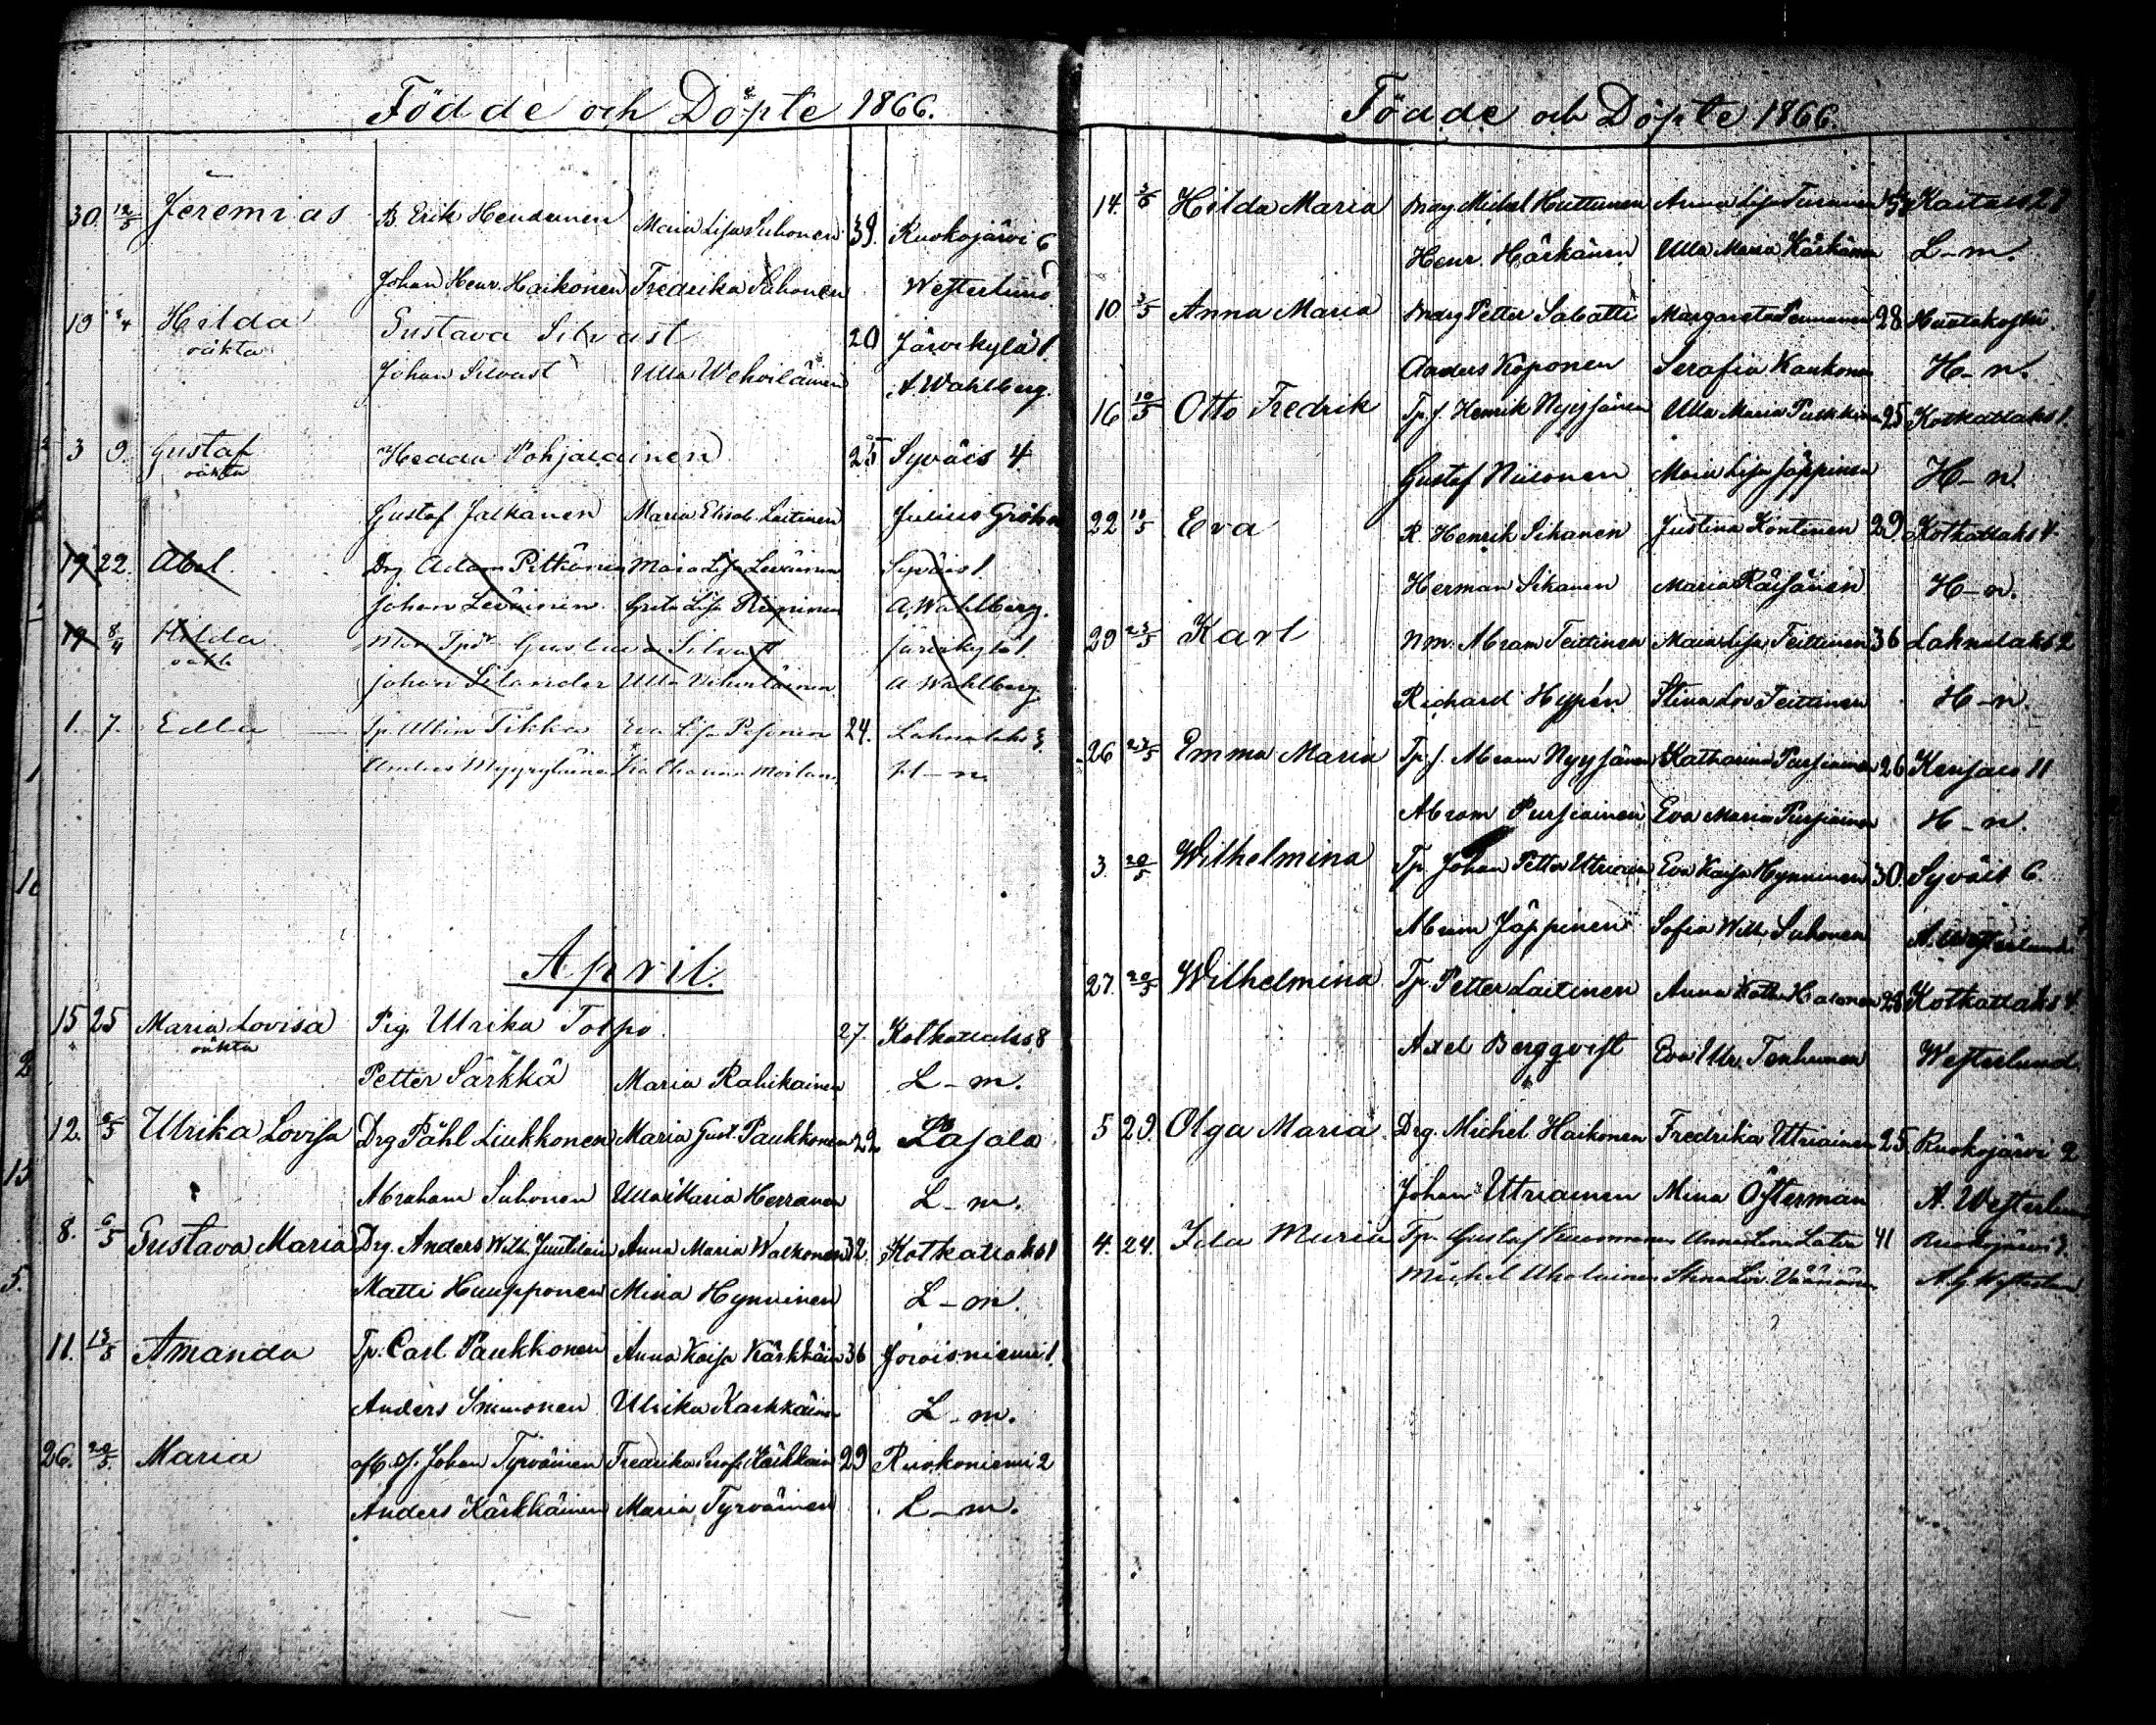 Födde och Döpte 1866.
30. 12/5 Jeremias B. Erik Heudunen Maria Lisa Suhonen 39. Ruokojärvi 6
Johan Henr. Haikonen Fredrika Suhonen Westerlund
19 2/4 Hilda Gustava Silvast 20 Järvikylä 1
oäkta
Johan Silvast Ulla Wehviläinen A. Wahlberg.
3 9. Gustaf Hedda Pohjalainen 25 Syväis 4
oäkta
Gustaf Jalkanen Maria Elisab. Laitinen Julius Gröhn
19 22. Abel Drg Adam Pitkänen Maria Lisa Leväinen Syväis 1.
Johan Leväinen Greta Lisa A. Wahlberg.
19 8/4 Hilda Gustava Silvast Järvikylä 1.
oäkta
Johan Silander Ulla Vehviläinen A Wahlberg
1. 7. Edla Tp. Albin Tikka Eva Lisa Pesonen 24. Lahnalaks 3.
Anders Myyryläinen Katharina Moilan. H-n.
April.
15 25 Maria Lovisa Pig. Ulrika Tolpo 27. Kotkatlaks 8
oäkta
Petter Särkkä Maria Rahikainen L-m.
12. 6/5 Ulrika Lovisa Drg Påhl Liukkonen Maria Gust. Paukkonen 22 Lasala
Abraham Suhonen Ulla Maria Herranen L-m.
8. 6/5 Gustava Maria Drg. Anders Wilh. Juutilain Anna Maria Walkonen 32. Kotkatlaks 1
Matti Haupponen Mina Hynninen L-m.
11. 13/5 Amanda Tp. Carl Paukkonen Anna Kaisa Kärkkäin 36 Joroisniemi 1.
Anders Immonen Ulrika Karkkäinen L-m.
26. 20/5 Maria Johan Tyrväinen Fredrika Serafi Kärkkäin 29 Ruokoniemi 2
Anders Kärkkäinen Maria Tyrväinen L-m.
Födde och Döpte 1866.
14. 3/5 Hilda Maria Michel Huttunen Anna Lisa Turunen Kaitais 27
Henr. Härkänen Ulla Maria Kärkänen L-m.
10 3/5 Anna Maria Petter Sabatti Margareta Pennanen 28 Hautakoski
Anders Koponen Serafia Kaukonen H-n.
16 10/5 Otto Fredrik Tp. s. Henrik Nyyssönen Ulla Maria Pulkkinen 25 Kotkatlaks 1.
Gustaf Niilonen Maria Lisa Jäppinen H-n.
22 10/5 Eva R. Henrik Sikanen Justina Kontinen 29 Kotkatlaks 4.
Herman Sikanen Maria Räisänen H-n.
29 23/5 Karl Nm. Abram Teittinen Maria Lisa Teittinen 36 Lahnalaks 2
Richard Hypén Stina Lov. Teittinen H-n.
26 27/5 Emma Maria Tp. s. Abram Nyyssönen Katharina Pursiainen 26 Kensais 11
Abram Pursiainen Eva Maria Pursiainen H-n.
3. 20/5 Wilhelmina Tp. Johan Petter Utriain Eva Kaisa Hynninen 30. Syväis 6.
Abram Jäppinen Sofia Wilh. Suhonen A. Westerlund
27. 20/5 Wilhelmina Tp. Petter Laitinen Anna Kath. 28 Kotkatlaks 4
Axel Bergqvist Eva Ulr. Tenhunen Westerlund.
5 29. Olga Maria Drg. Michel Haikonen Fredrika Utriainen 25. Ruokojärvi 2
Johan Utriainen Mina Österman A. Westerlun
4. 24. Ida Maria Tp. Gustaf Kuosmanen Anna Lena 41 Ruokojärvi 3.
Michel Aholainen Stina Lov. Väänänen A. G. Westerlun